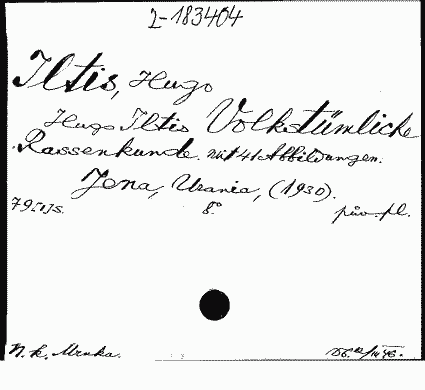 2-183404
Iltis, Hugo
Hugo Iltis Volkstümliche
Rassenkunde. mit 41 Abbildungen.
Jena, Urania, (1930).
79[1]s. 8° pův. pl.
N. k. Mrnka.